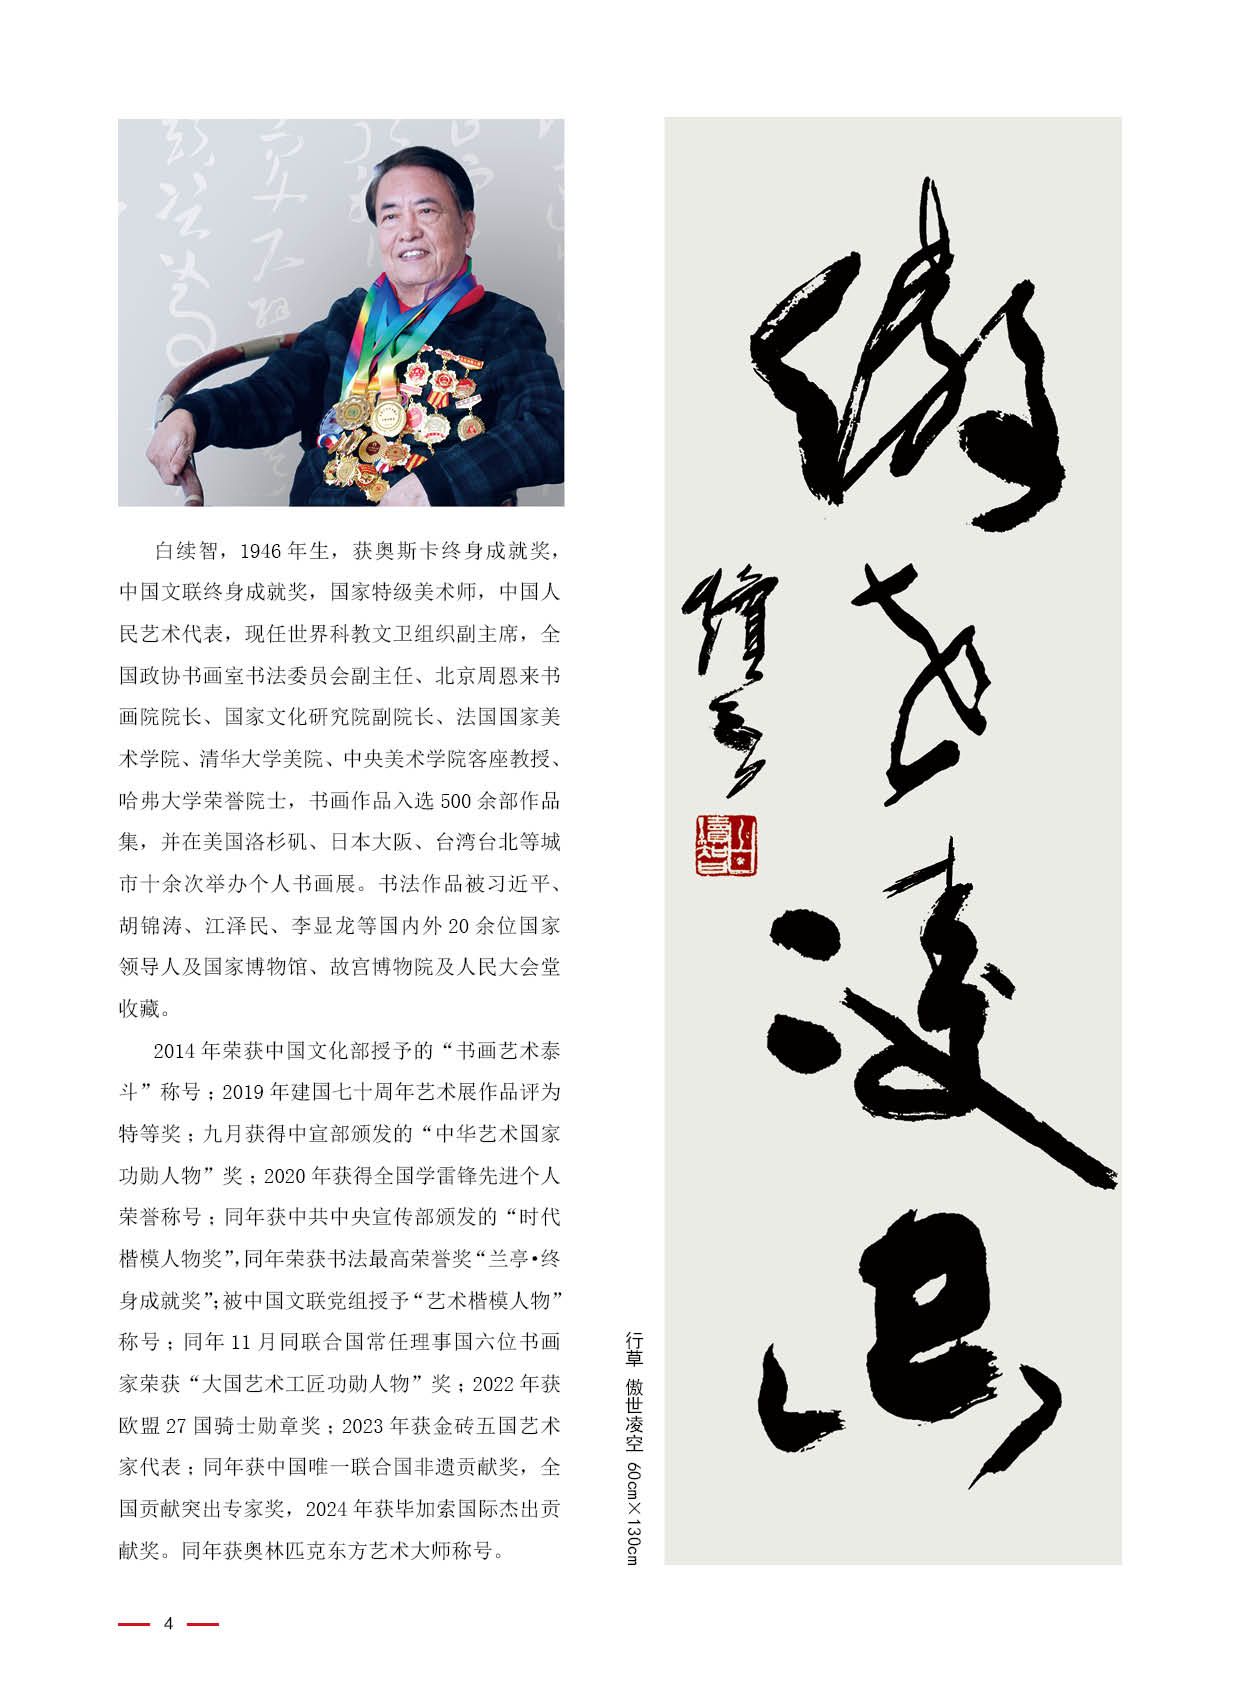 白续智，1946 年生，获奥斯卡终身成就奖，
中国文联终身成就奖，国家特级美术师，中国人
民艺术代表，现任世界科教文卫组织副主席，全
国政协书画室书法委员会副主任、北京周恩来书
画院院长、国家文化研究院副院长、法国国家美
术学院、清华大学美院、中央美术学院客座教授、
哈弗大学荣誉院士，书画作品入选 500 余部作品
集，并在美国洛杉矶、日本大阪、台湾台北等城
市十余次举办个人书画展。书法作品被习近平、
胡锦涛、江泽民、李显龙等国内外 20 余位国家
领导人及国家博物馆、故宫博物院及人民大会堂
收藏。
2014 年荣获中国文化部授予的“书画艺术泰
斗”称号；2019 年建国七十周年艺术展作品评为
特等奖；九月获得中宣部颁发的“中华艺术国家
功勋人物”奖；2020 年获得全国学雷锋先进个人
荣誉称号；同年获中共中央宣传部颁发的“时代
楷模人物奖”，同年荣获书法最高荣誉奖“兰亭•终
身成就奖”；被中国文联党组授予“艺术楷模人物”
称号；同年 11 月同联合国常任理事国六位书画
家荣获“大国艺术工匠功勋人物”奖；2022 年获
欧盟 27 国骑士勋章奖；2023 年获金砖五国艺术
家代表；同年获中国唯一联合国非遗贡献奖，全
国贡献突出专家奖，2024 年获毕加索国际杰出贡
献奖。同年获奥林匹克东方艺术大师称号。
傲世凌空
续智
白续智
行草 傲世凌空 60cm×130cm
4